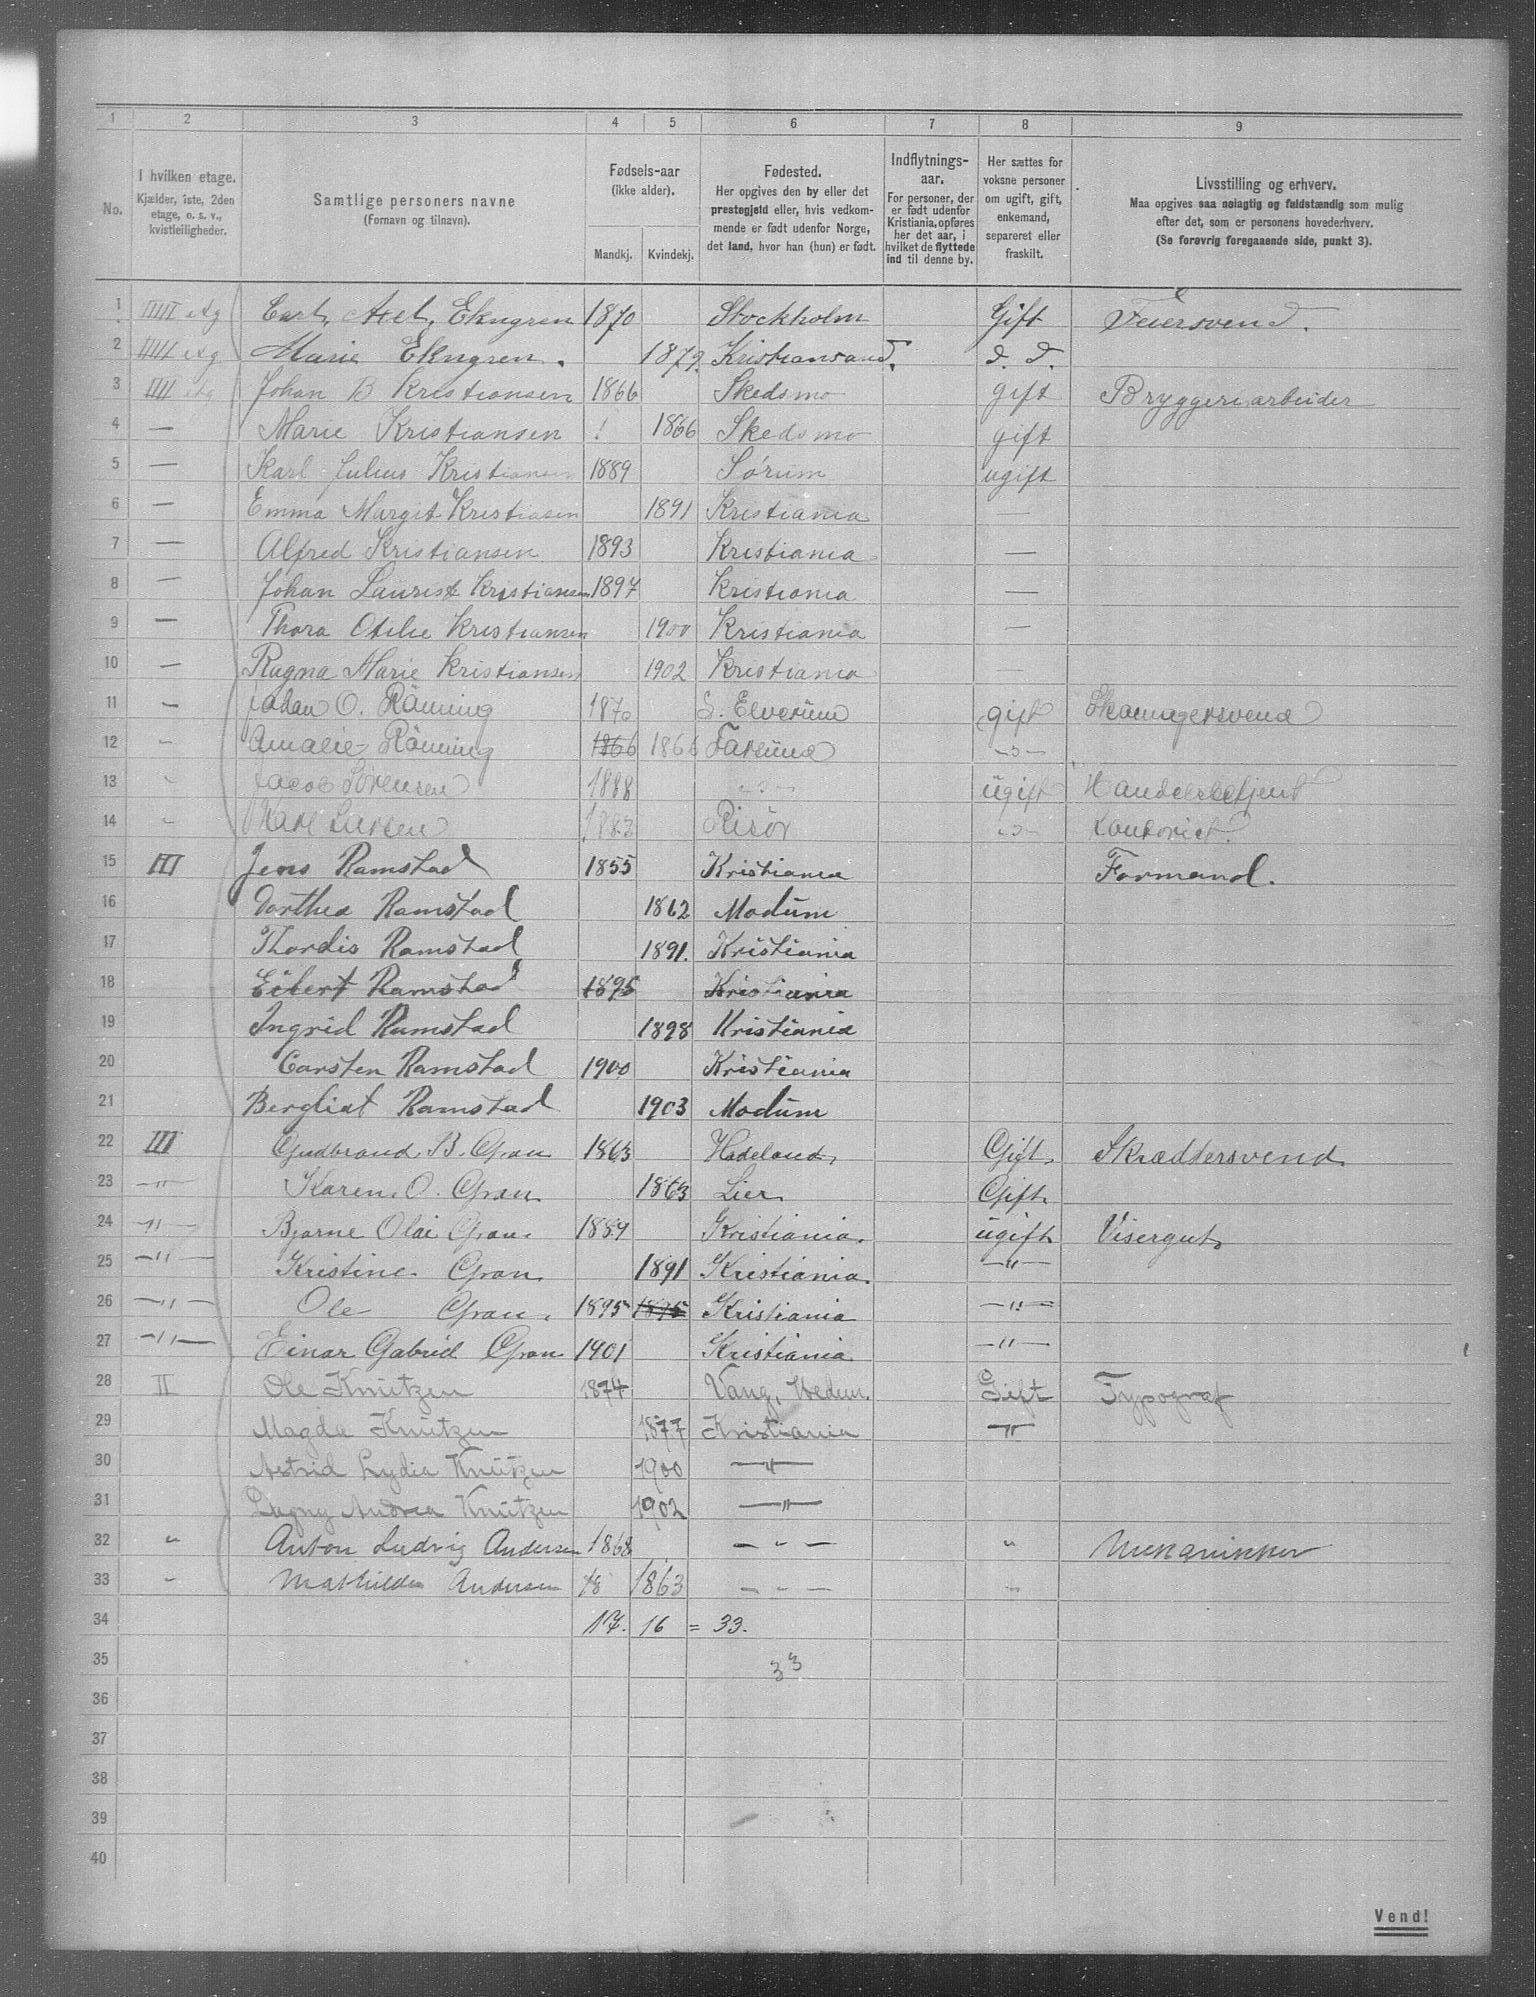 1 2 3 4 5 6 7 8 9
No.
I hvilken etage.
Kjælder, 1ste, 2den
etage, o. s. v.,
kvistleiligheder.
Samtlige personers navne
(Fornavn og tilnavn).
Fødsels-aar
(ikke alder).
Mandkj. Kvindekj.
Fødested.
Her opgives den by eller det
prestegjeld eller, hvis vedkom-
mende er født udenfor Norge,
det land, hvor han (hun) er født.
Indflytnings-
aar.
For personer, der
er født udenfor
Kristiania, opføres
her det aar, i
hvilket de flyttede
ind til denne by.
Her sættes for
voksne personer
om ugift, gift,
enkemand,
separeret eller
fraskilt.
Livsstilling og erhverv.
Maa opgives saa nøiagtig og fuldstændig som mulig
efter det, som er personens hovederhverv.
(Se forøvrig foregaaende side, punkt 3).
1 IIIII Carl, Axel, Ekngren 1870 Stockholm Gift Feiersvend.
2 IIIII Marie Ekngren. 1879. Kristiansand. d. d.
3 IIII Johan B Kristiansen 1866 Skedsmo gift Bryggeriarbeider
4 — Marie Kristiansen ! 1866 Skedsmo gift
5 — Karl Julius Kristiansen 1889 Sørum ugift
6 — Emma Margit Kristiasen 1891 Kristiania —
7 — Alfred Kristiansen 1893 Kristiania —
8 — Johan Laurist Kristiansen 1897 Kristiania —
9 — Thora Otilie Kristiansen 1900 Kristiania —
10 — Ragna Marie Kristiansen 1902 Kristiania —
11 — Johan O. Röning 1870 S. Elverum gift Skomagersvend
12 - Amalie Röning 1866 1866 Farsund -"-
13 " Jacob Sörensen 1888 -"- ugift Handelsbetjent
14 " Karl Larsen 1883 Risör -"- Kontorist.
15 III Jens Ramstad 1855 Kristiania Formand.
16 Dorthea Ramstad 1862 Modum
17 Thordis Ramstad 1891. Kristiania
18 Eibert Ramstad 1895 Kristiania
19 Ingrid Ramstad 1898 Kristiania
20 Carsten Ramstad 1900 Kristiania
21 Bergliat Ramstad 1903 Modum
22 III Gudbrand. B. Gran 1863 Hadeland, Gift. Skræddersvend
23 —"— Karen. O. Gran 1863 Lier Gift.
24 —"— Bjarne Olai Gran. 1889 Kristiania. ugift Visergut
25 —"— Kristine. Gran 1891 Kristiania. —"—
26 —"— Ole Gran. 1895 1895 Kristiania —"—
27 —"— Einar Gabriel Gran 1901 Kristiania —"—
28 II Ole Knutzen 1874 Vang, Hedm. Gift Typograf
29 Magda Knutzen 1877 Kristiania —"—
30 Astrid Lydia Knutzen 1900 —"—
31 Dagny Andrea Knutzen 1902 —"—
32 " Anton Ludvig Andersen 1868 — " — " Mekanikker
33 " Mathilde Andersen 18 1863 — " — "
34 17. 16 = 33.
35 33
36
37
38
39
40
Vend!